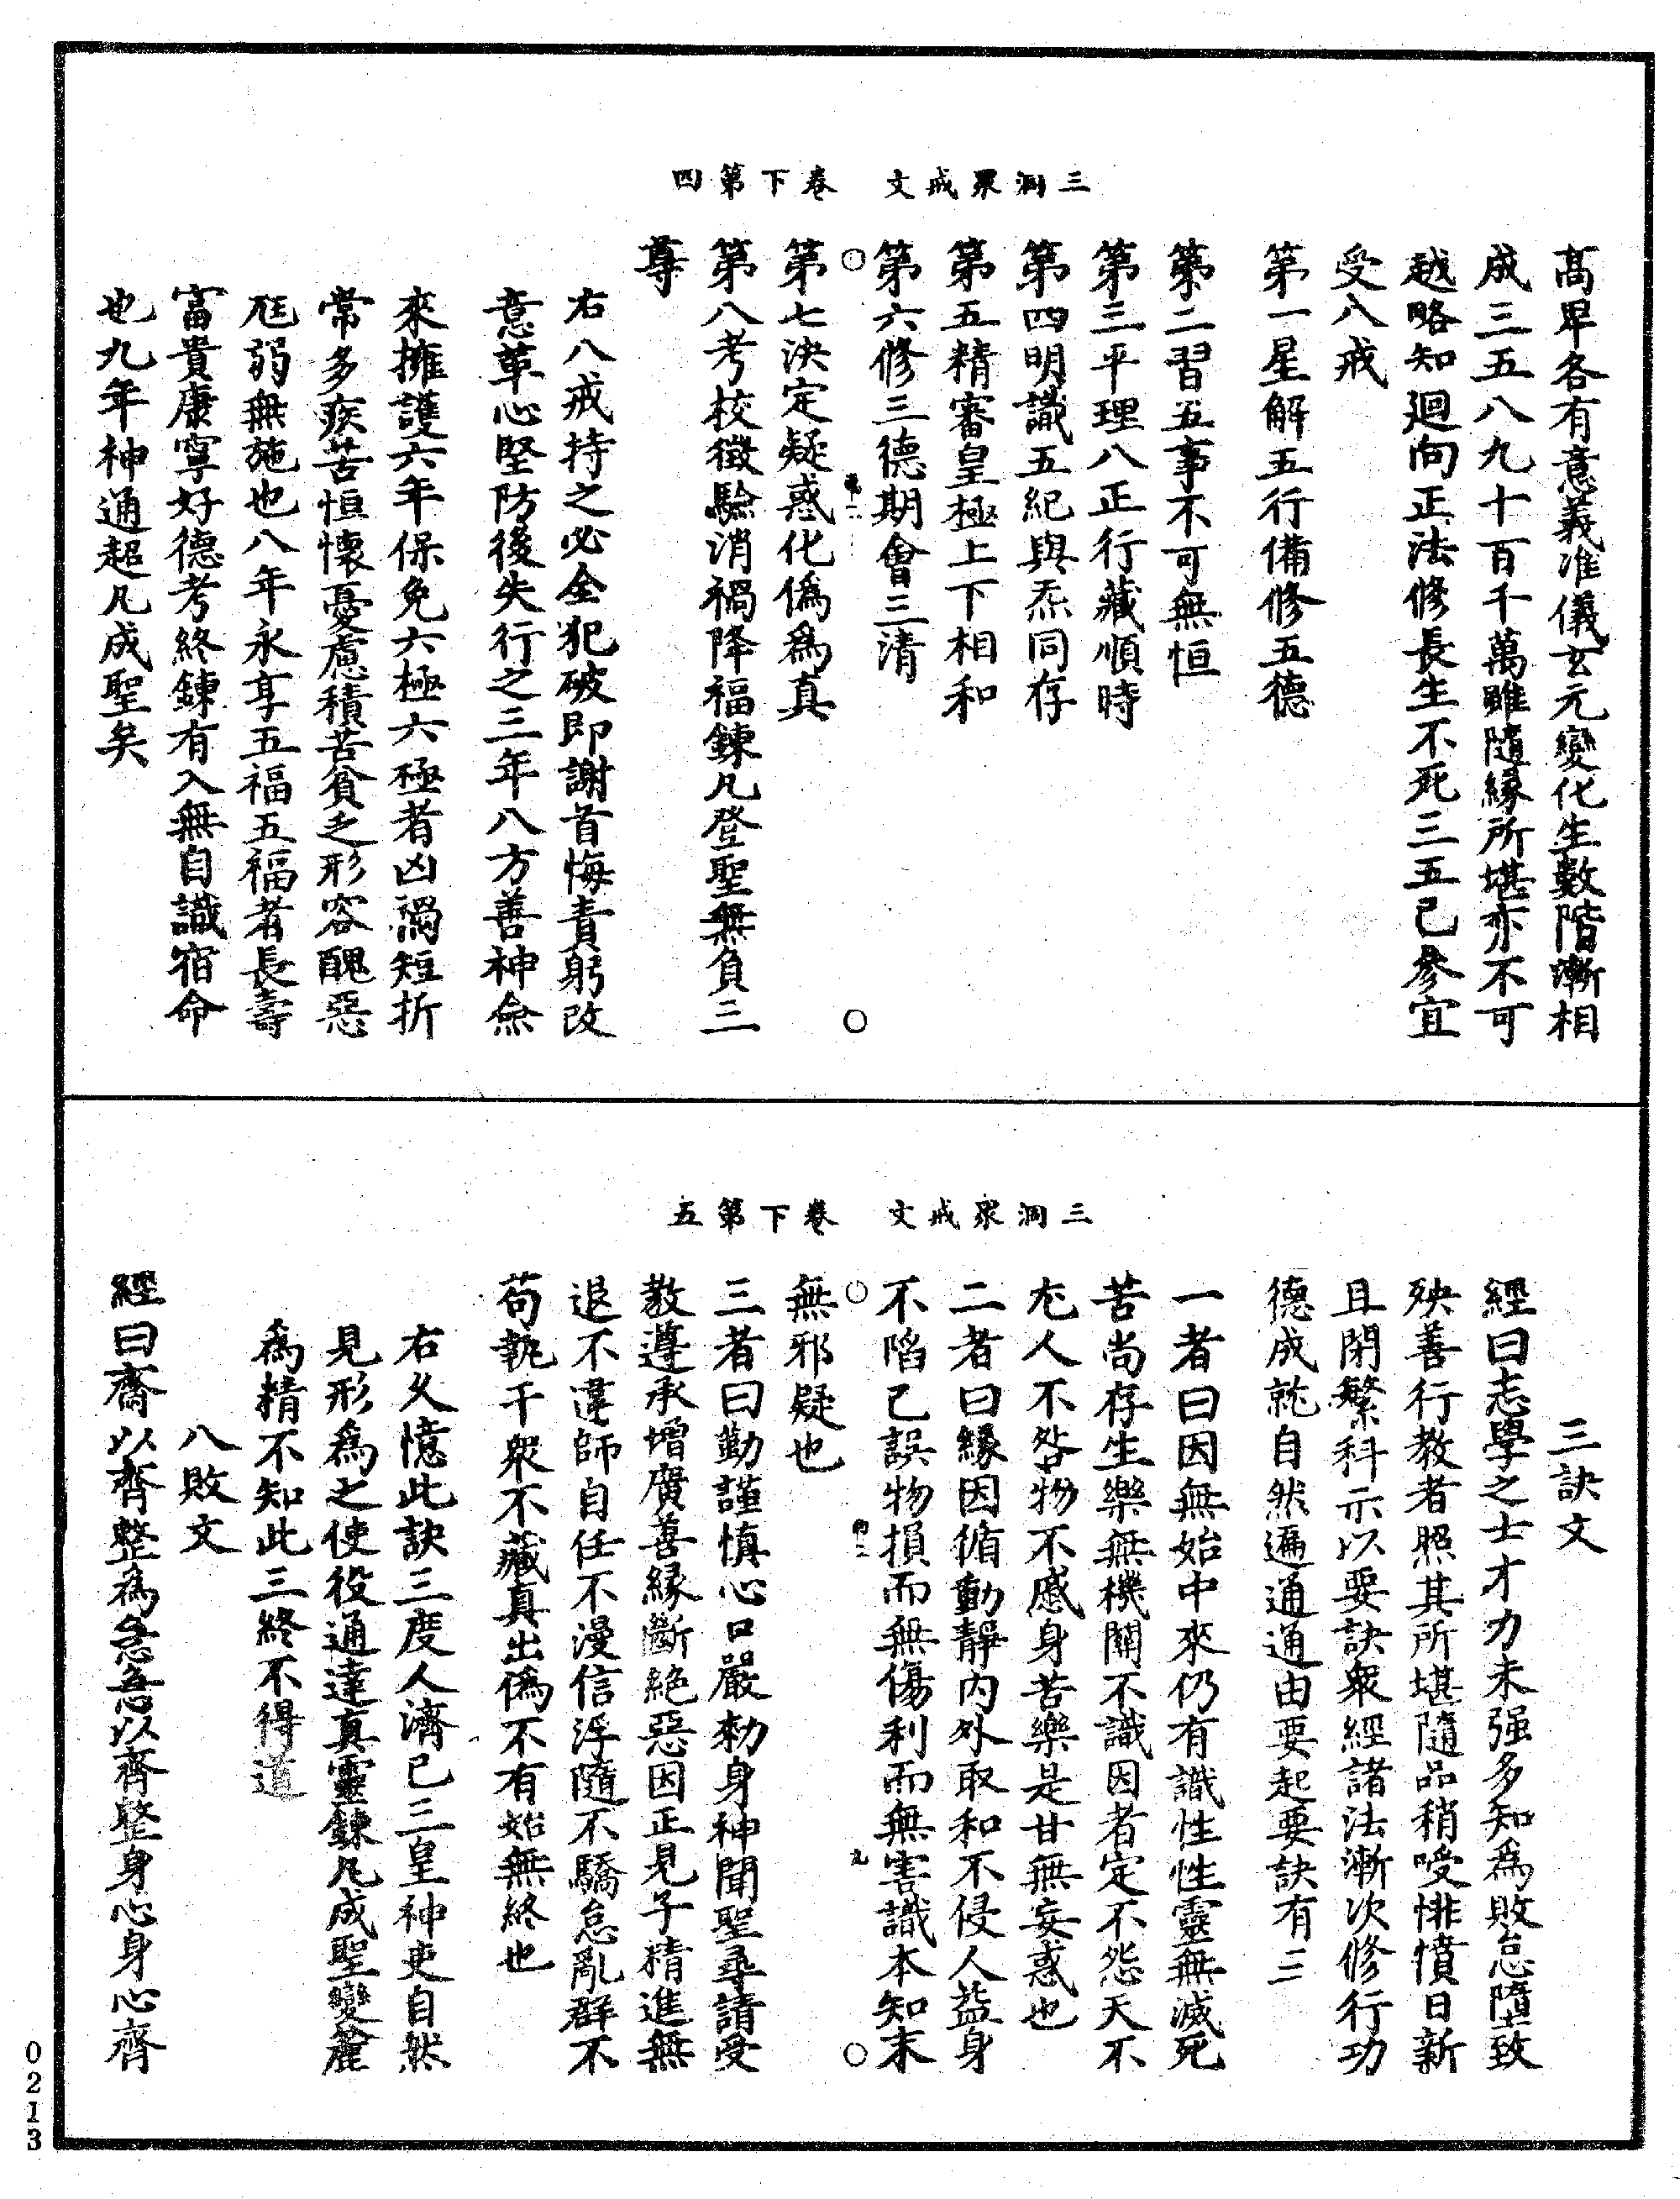 三洞眾戒文　卷下第四
高卑各有意義准儀玄元變化生數階漸相
成三五八九十百千萬雖隨緣所堪亦不可
越略知迴向正法修長生不死三五已參宜
受八戒
第一星解五行備修五德
第二習五事不可無恒
第三平理八正行藏順時
第四明識五紀與炁同存
第五精審皇極上下相和
第六修三德期會三清
第七決定疑惑化僞爲真
第八考校徵驗消禍降福鍊凡登聖無負三
尊
右八戒持之必全犯破即謝首悔責躬改
意革心堅防後失行之三年八方善神僉
來擁護六年保免六極六極者凶禍短折
常多疾苦恒懷憂慮積苦貧乏形容醜惡
尫弱無施也八年永享五福五福者長壽
富貴康寧好德考終鍊有入無自識宿命
也九年神通超凡成聖矣
三洞眾戒文　卷下第五
三訣文
經曰志學之士才力未强多知爲敗怠墮致
殃善行教者照其所堪隨品稍嗳悱憤日新
且閉繁科示以要訣眾經諸法漸次修行功
德成就自然遍通通由要起要訣有三
一者曰因無始中來仍有識性性靈無滅死
苦尚存生樂無機關不識因者定不怨天不
尤人不咎物不慼身苦樂是甘無妄惑也
二者曰緣因循動靜內外取和不侵人益身
不陷己誤物損而無傷利而無害識本知末
無邪疑也
三者曰勤謹慎心口嚴勑身神聞聖尋請受
教遵承增廣善緣斷絕惡因正見子精進無
退不違師自任不漫信浮隨不驕怠亂群不
苟執干眾不藏真出僞不有始無終也
右久憶此訣三度人濟已三皇神吏自然
見形爲之使役通達真靈鍊凡成聖變麤
爲精不知此三終不得道
八敗文
經曰齋以齊整爲急急以齊整身心身心齊
0213